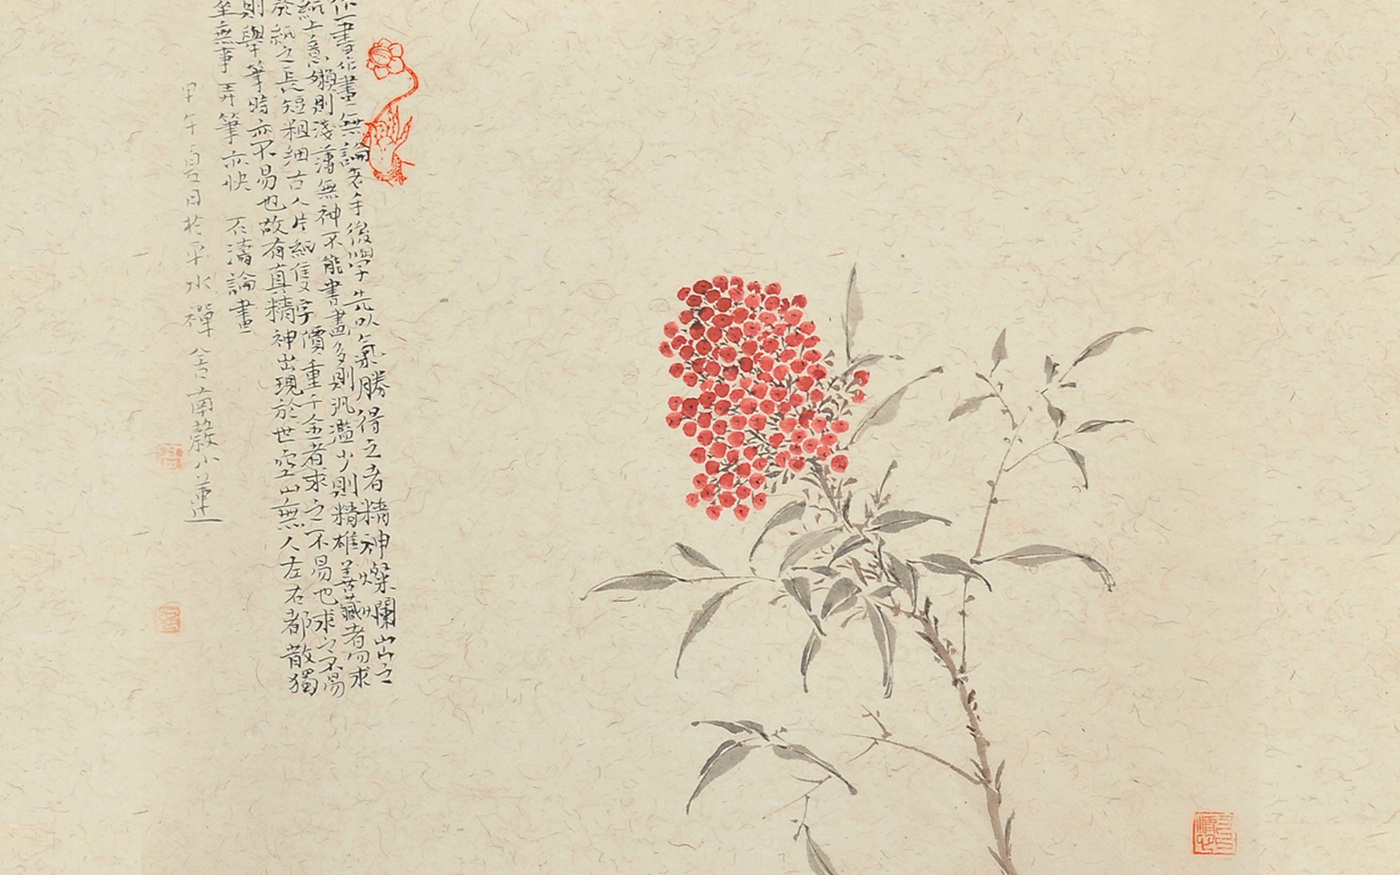 作書作畫無論老手後學先以氣勝得之者精神燦爛出之
紙上意嬾則淺薄無神不能書畫多則汎濫少則精雄善藏者勿求
於紙之長短粗細古人片紙隻字價重千金者求之不易也求之不易
則舉筆時亦不易也故有真精神出現於世空山無人左右都散獨
至無事弄筆亦快 石濤論畫
甲午夏日於平水禪舍南穀小蓮